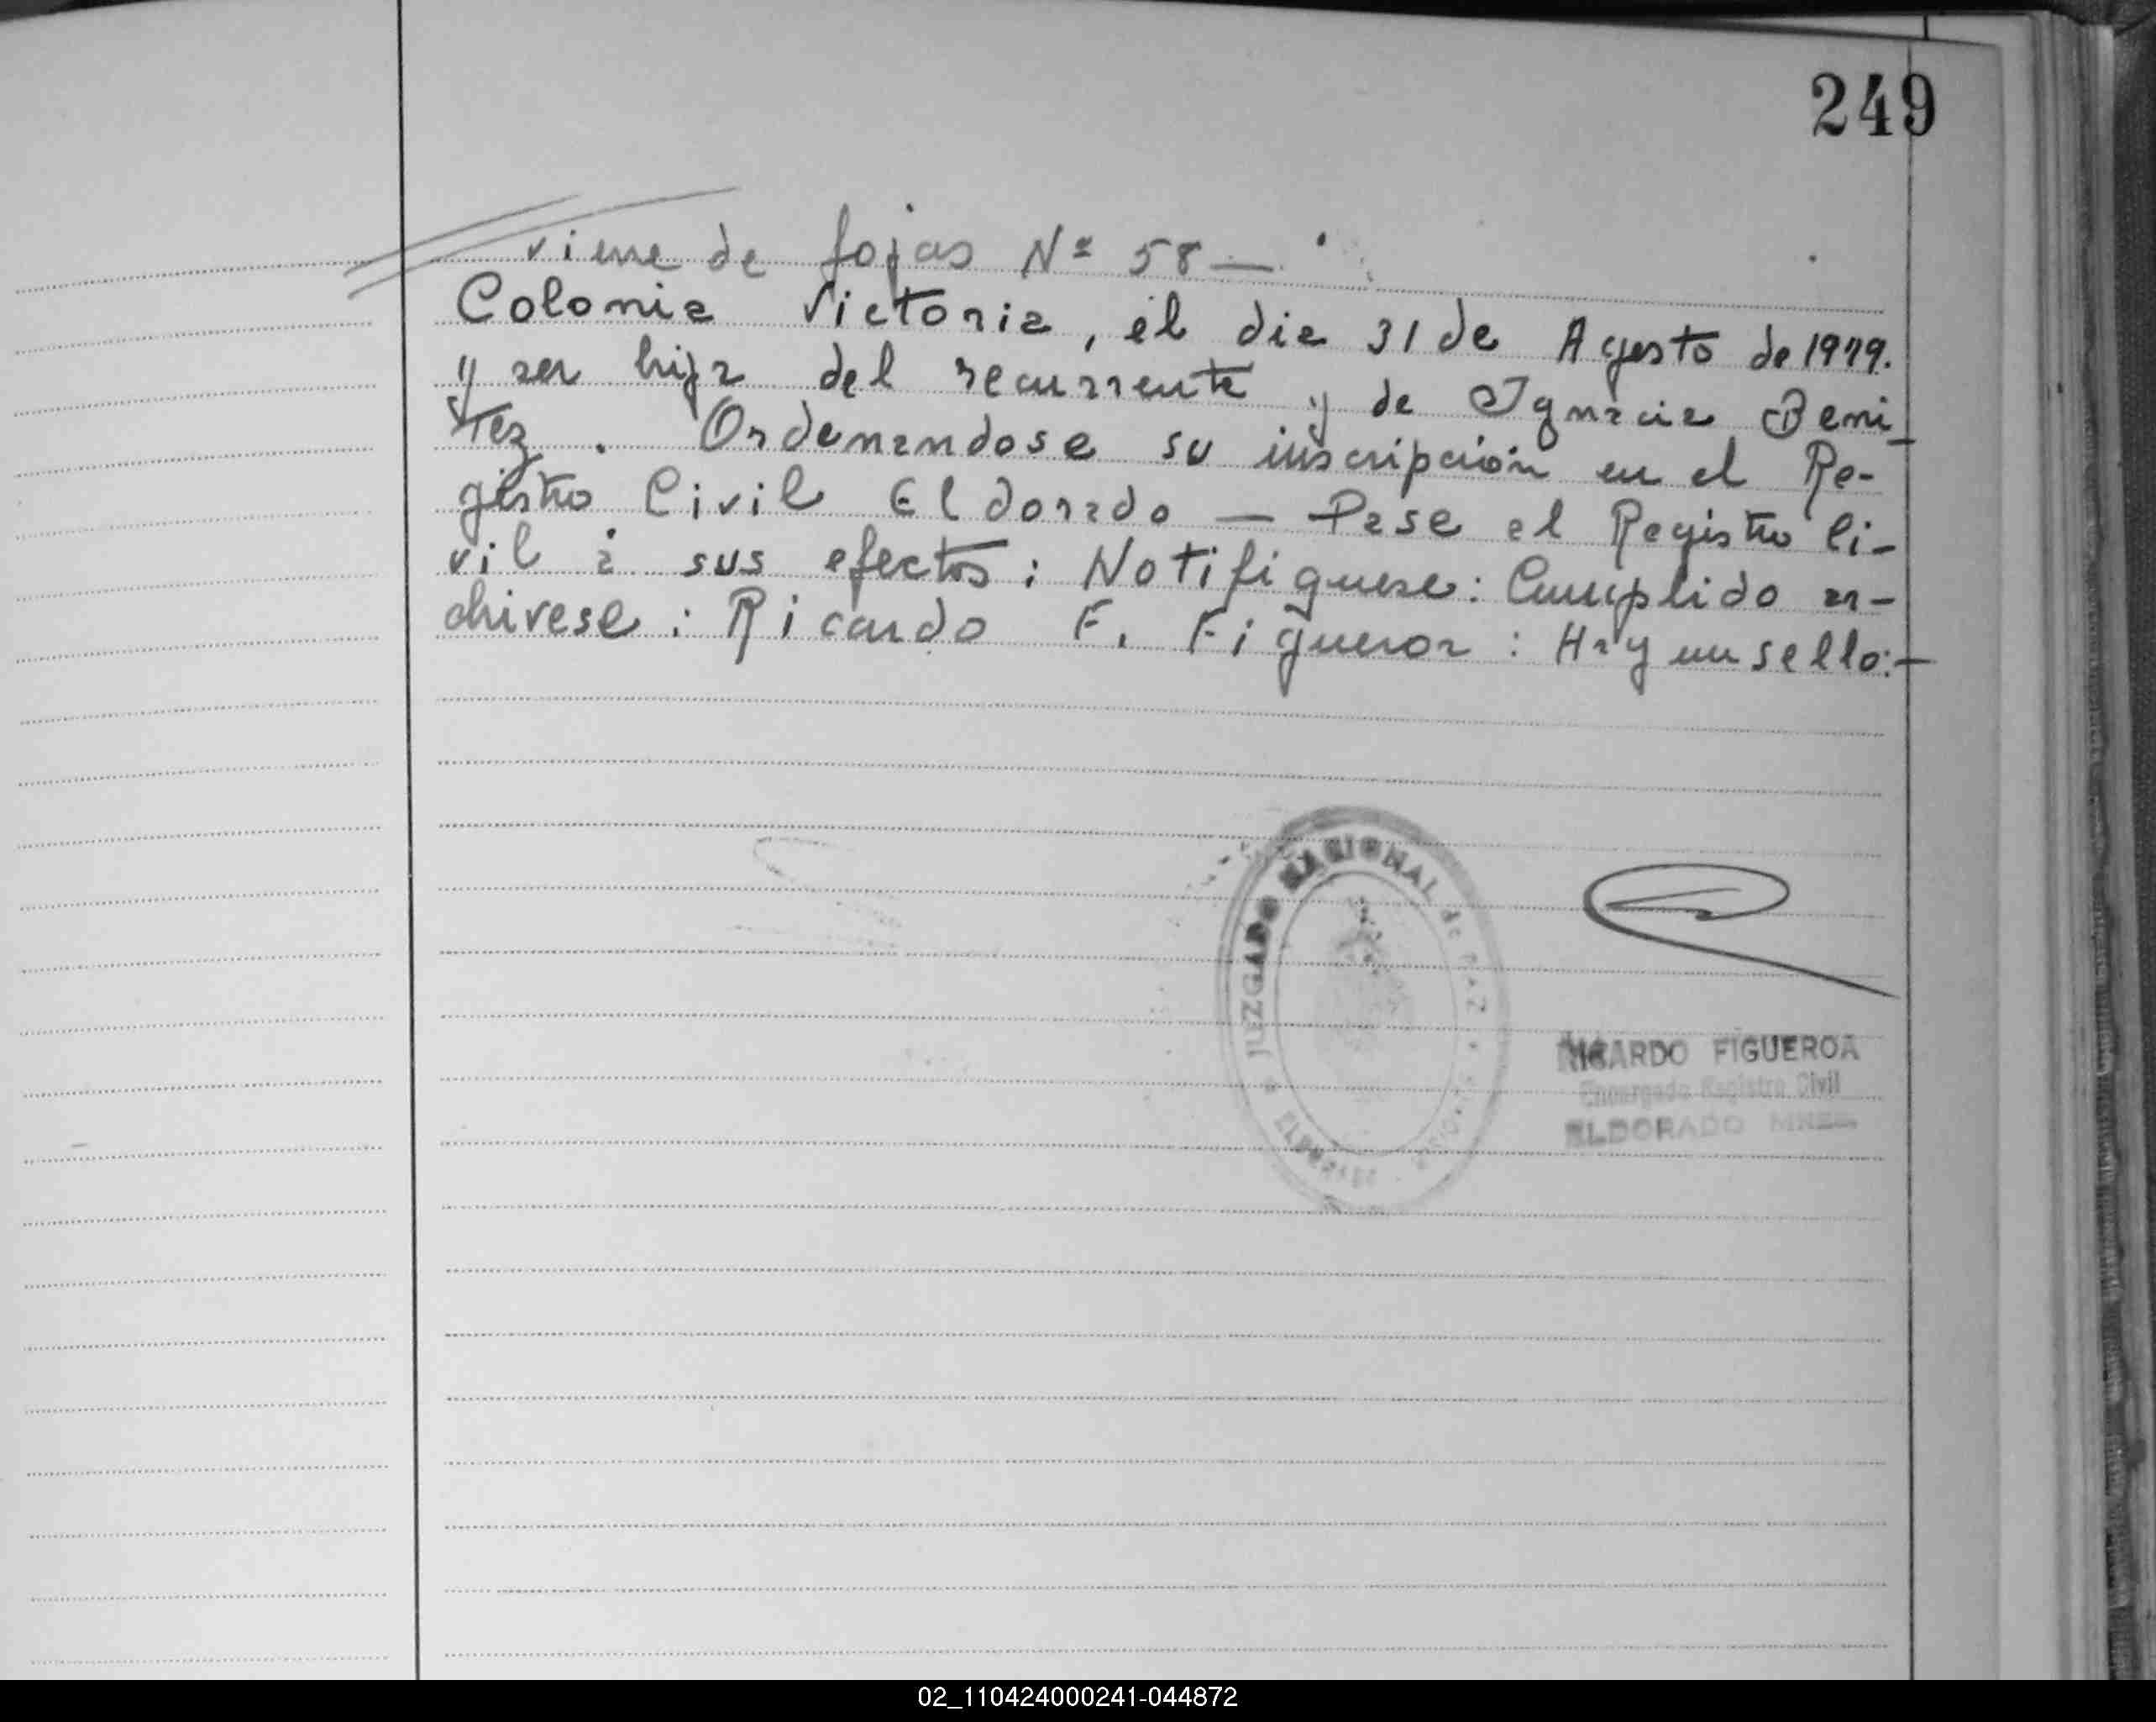 249
viene de fojas Nº 58 —
Colonia Victoria, el dia 31 de Agosto de 1949.
y ser hija del recurrente y de Ignacia Beni_
tez. Ordenandose su inscripción en el Re-
gistro Civil Eldorado — Pase al Registro Ci-
vil a sus efectos: Notifiquese: Cumplido ar-
chivese: Ricardo F. Figueroa: Hay un sello:-
JUZGADO NACIONAL de PAZ
ELDORADO
RICARDO FIGUEROA
Encargado Registro Civil
ELDORADO MNES.
02_110424000241-044872